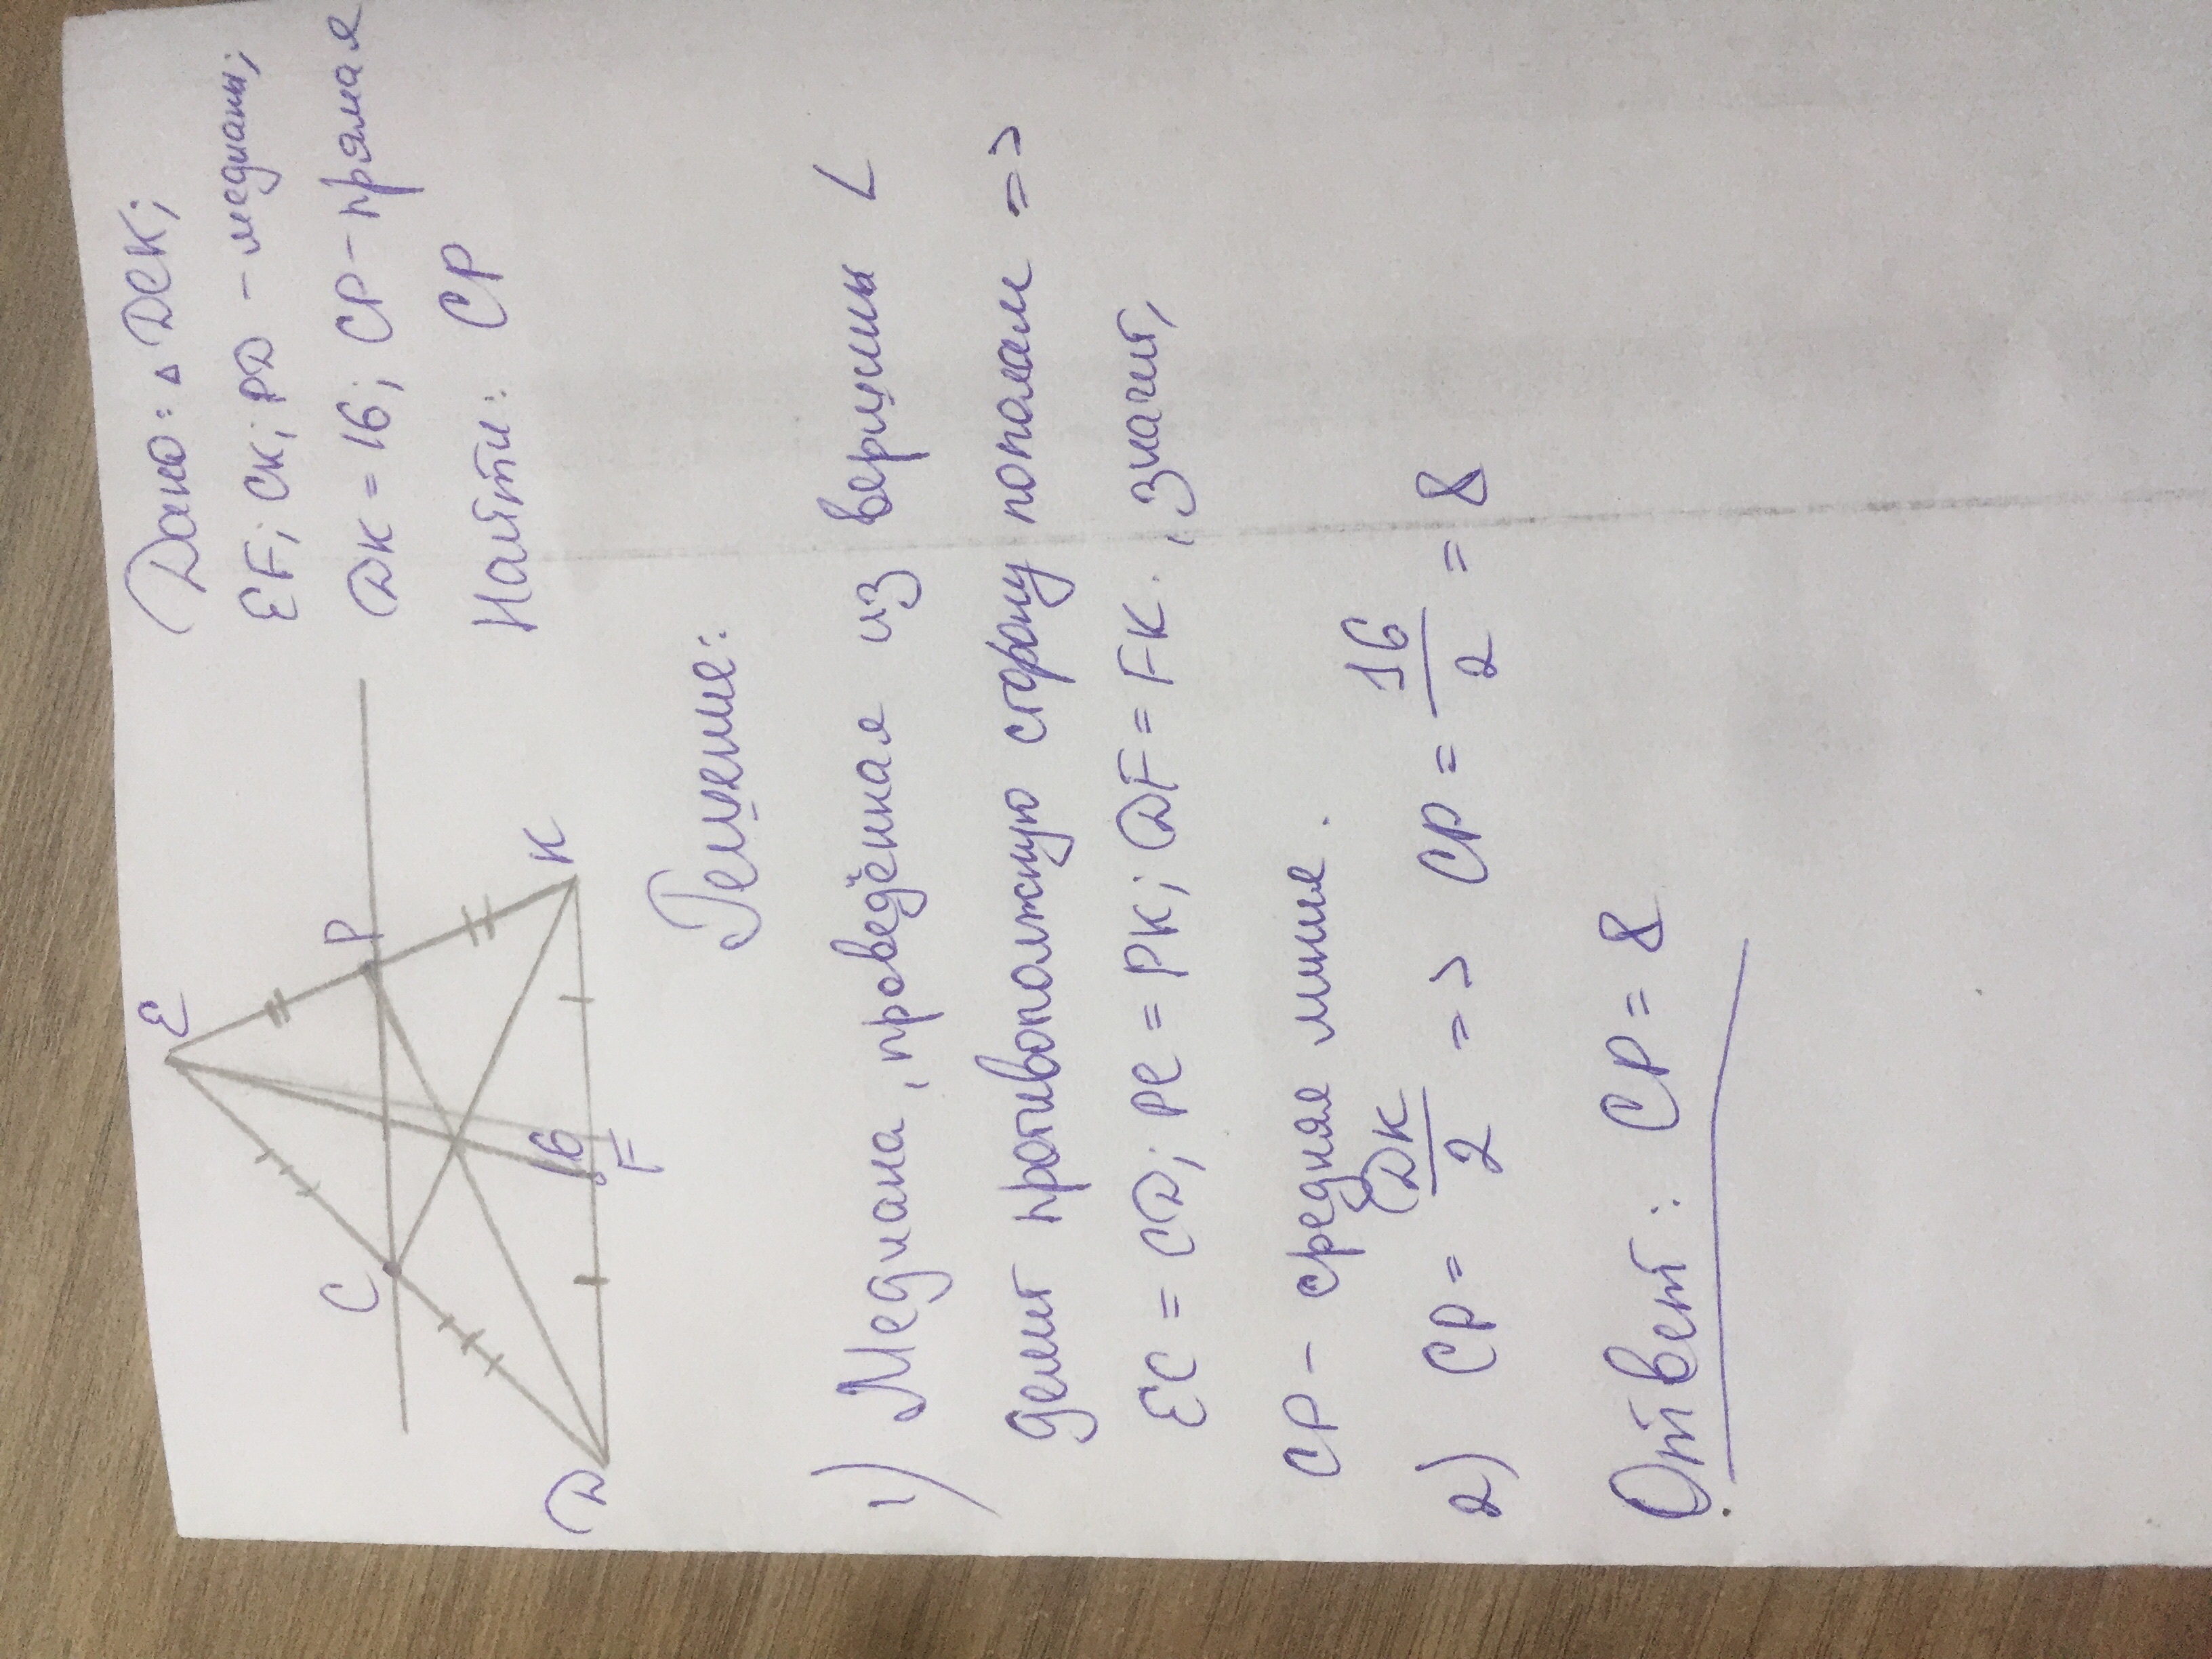 E
C
P
D
16
K
F
Дано: △ DEK;
EF; CK; PD – медианы;
DK = 16; CP – прямая
Найти: CP
Решение:
1) Медиана, проведённая из вершины ∠
делит противополжную сторону пополам =>
EC = CD; PE = PK; DF = FK. , значит,
CP – средняя линия.
2) CP = DK/2 => CP = 16/2 = 8
Ответ: CP = 8